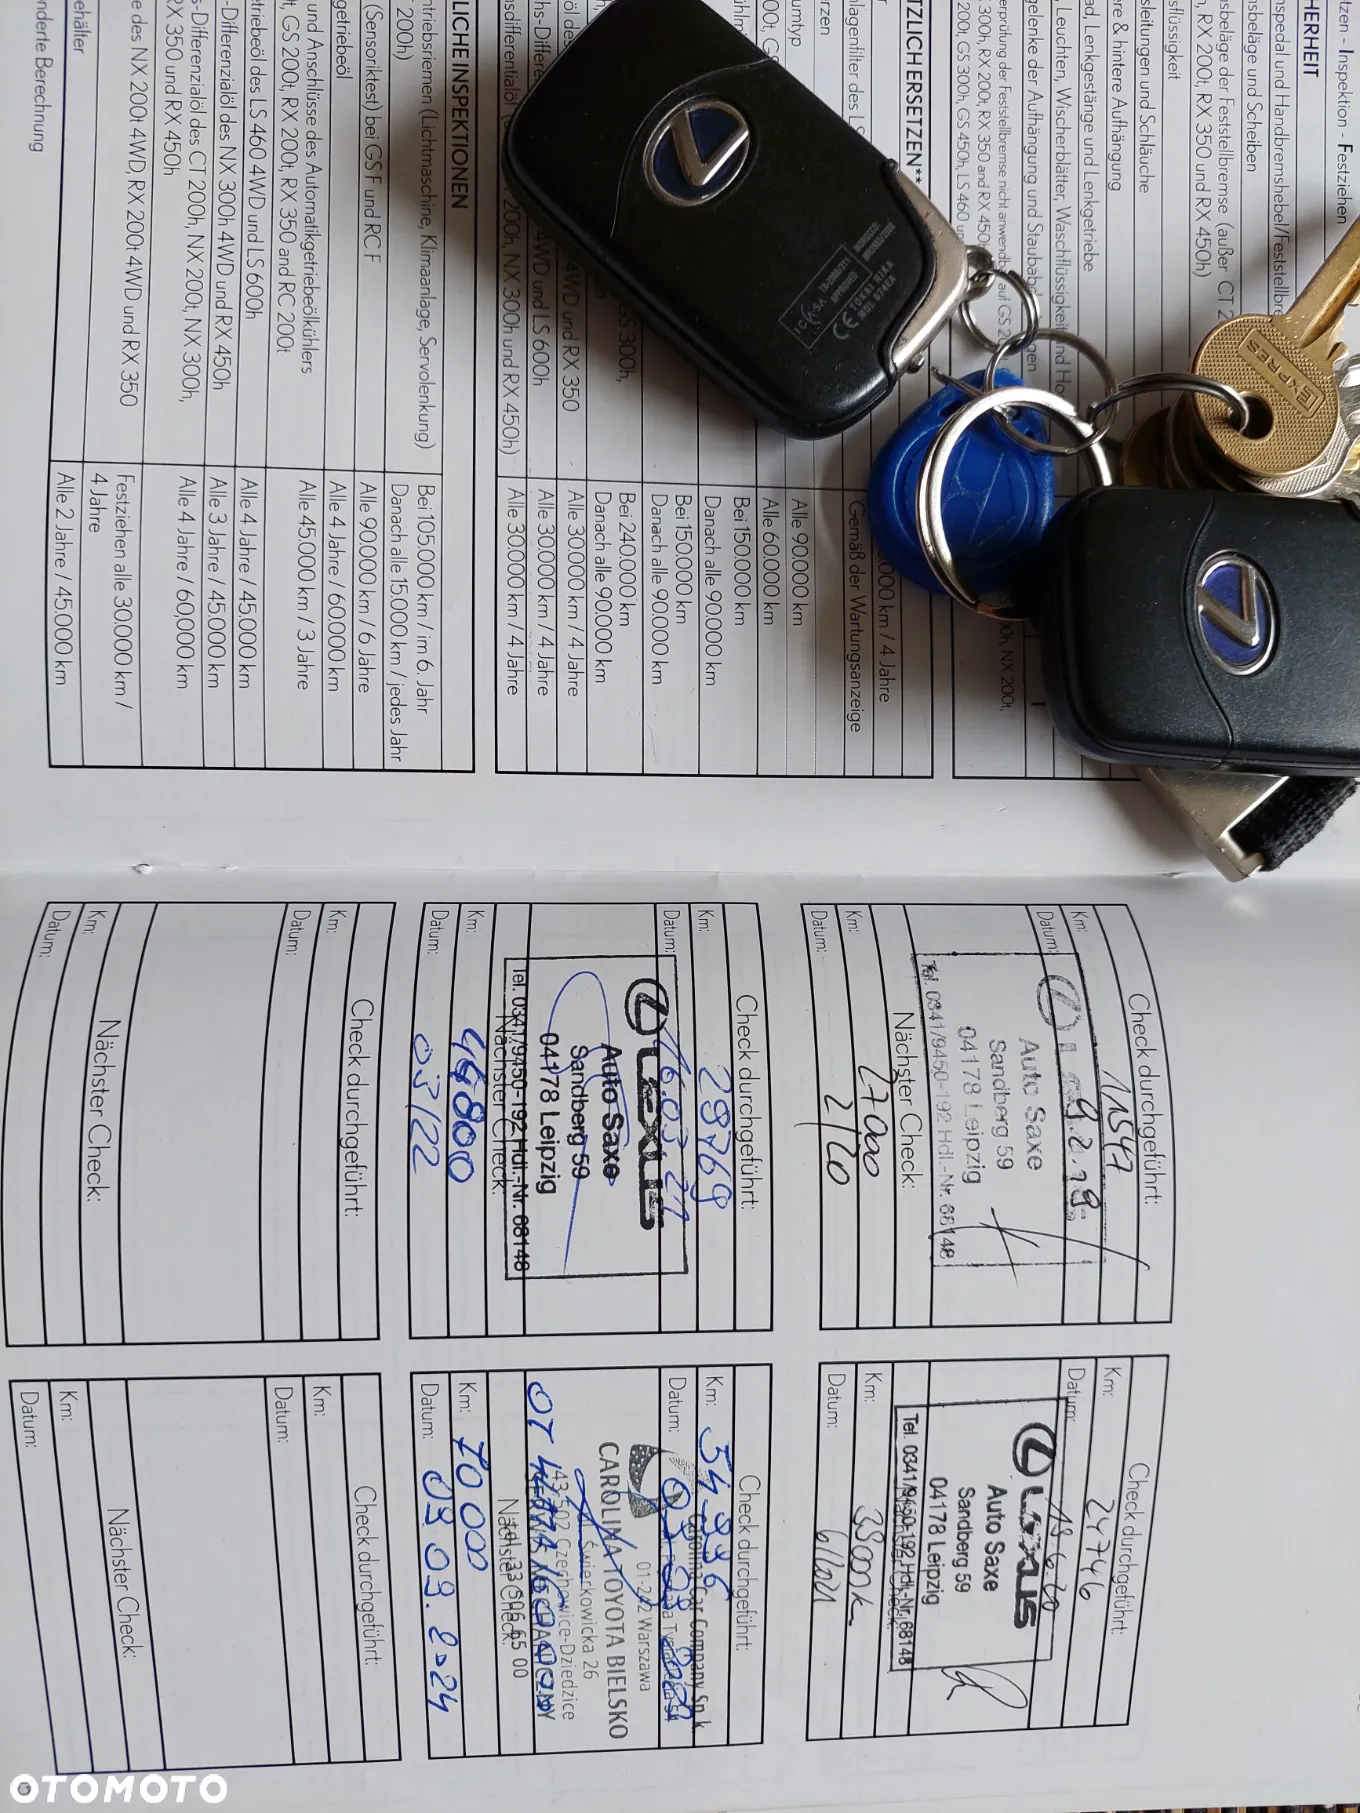 tzen - Inspektion - Festziehen
HERHEIT
nspedal und Handbremshebel/Feststellbre
nsbeläge und Scheiben
nsbeläge der Feststellbremse (außer CT 2
h, RX 200t, RX 350 und RX 450h)
sflüssigkeit
sleitungen und Schläuche
ere & hintere Aufhängung
ad, Lenkgestänge und Lenkgetriebe
, Leuchten, Wischerblätter, Waschflüssigkeit und Ho
gelenke der Aufhängung und Staubab gen
erprüfung der Feststellbremse nicht anwendb auf GS 2
TZLICH ERSETZEN**
000 km / 4 Jahre
nlagenfilter des LS
Gemäß der Wartungsanzeige
umtyp
rzen
Alle 90.000 km
Alle 60.000 km
Bei 150.000 km
Danach alle 90.000 km
Bei 150.000 km
Danach alle 90.000 km
GS 300h,
Bei 240.000 km
Danach alle 90.000 km
4WD und RX 350
Alle 30.000 km / 4 Jahre
4WD und LS 600h
Alle 30.000 km / 4 Jahre
200h, NX 300h und RX 450h)
Alle 30.000 km / 4 Jahre
LICHE INSPEKTIONEN
ntriebsriemen (Lichtmaschine, Klimaanlage, Servolenkung)
200h)
Bei 105.000 km / im 6. Jahr
Danach alle 15.000 km / jedes Jahr
(Sensoriktest) bei GS F und RC F
Alle 90.000 km / 6 Jahre
getriebeöl
Alle 4 Jahre / 60.000 km
und Anschlüsse des Automatikgetriebeölkühlers
t, GS 200t, RX 200t, RX 350 and RC 200t
Alle 45.000 km / 3 Jahre
etriebeöl des LS 460 4WD und LS 600h
Alle 4 Jahre / 45.000 km
-Differenzialöl des NX 300h 4WD und RX 450h
Alle 3 Jahre / 45.000 km
s-Differenzialöl des CT 200h, NX 200t, NX 300h,
RX 350 und RX 450h
Alle 4 Jahre / 60,000 km
e des NX 200t 4WD, RX 200t 4WD und RX 350
Festziehen alle 30.000 km /
4 Jahre
ehälter
Alle 2 Jahre / 45.000 km
nderte Berechnung
EXPRES
ICASA
TA-2009/211
APPROVED
CE TOKAI RIKA
MOD. B74EA
Check durchgeführt:
Km: 11547
Datum: 9.2.19.
Auto Saxe
Sandberg 59
04178 Leipzig
Tel. 0341/9450-192 Hdl.-Nr. 68148
Nächster Check:
Km: 27000
Datum: 2/20
Check durchgeführt:
Km: 24746
Datum: 18.6.20
LEXUS
Auto Saxe
Sandberg 59
04178 Leipzig
Tel. 0341/9450-192 Hdl.-Nr. 68148
Km: 39000k
Datum: 6/2021
Check durchgeführt:
Km: 29769
Datum: 16.03.21
LEXUS
Auto Saxe
Sandberg 59
04178 Leipzig
Tel. 0341/9450-192 Hdl.-Nr. 68148
Nächster Check:
Km: 44800
Datum: 03/22
Check durchgeführt:
Km: 54996
Datum:
Carolina Car Company Sp. k.
01-242 Warszawa
CAROLINA TOYOTA BIELSKO
ul. Świerkowicka 26
43-502 Czechowice-Dziedzice
Nächster Check:
Km: 70000
Datum: 09.09.2024
Check durchgeführt:
Km:
Datum:
Nächster Check:
Km:
Datum:
Check durchgeführt:
Km:
Datum:
Nächster Check:
Km:
Datum:
OTOMOTO